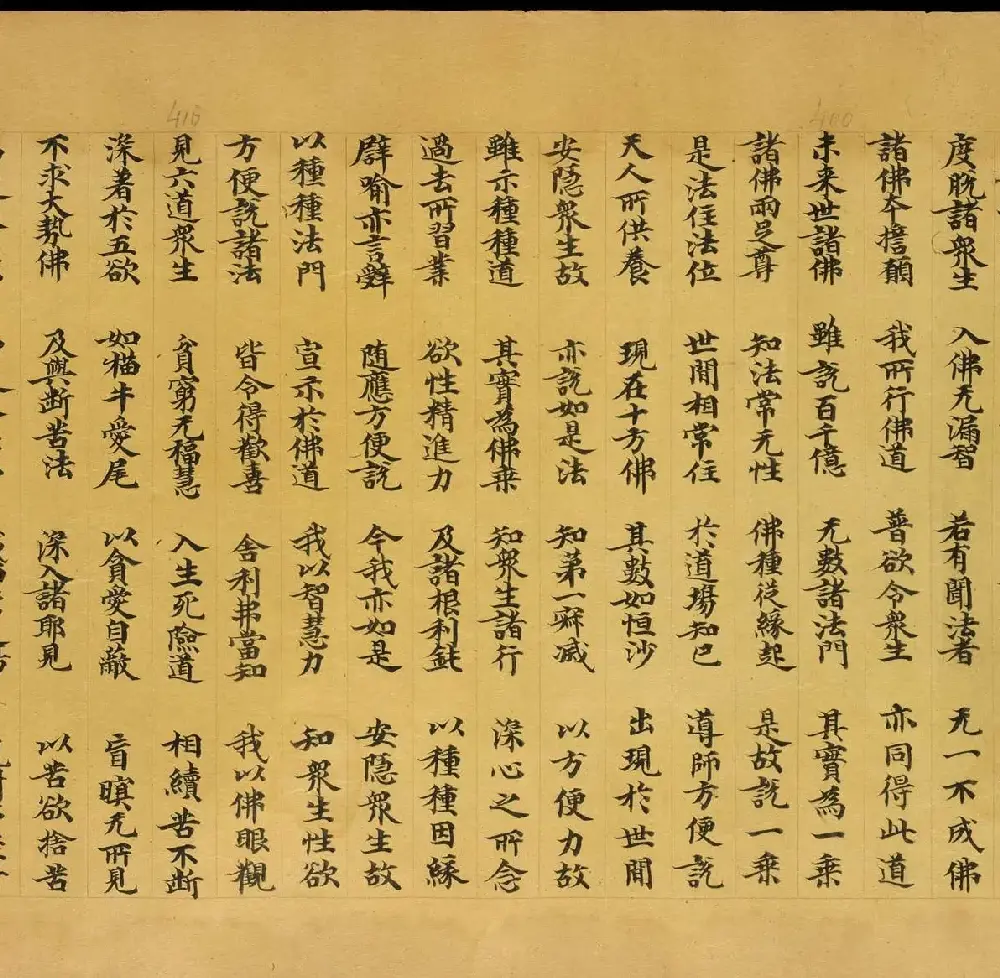 度脱諸衆生 入佛无漏智 若有聞法者 无一不成佛
諸佛本擔願 我所行佛道 普欲令衆生 亦同得此道
未来世諸佛 雖説百千億 无數諸法門 其實為一乗
諸佛兩足尊 知法常无性 佛種従緣起 是故説一乗
是法住法位 世間相常住 於道場知已 導師方便説
天人所供養 現在十方佛 其數如恒沙 出現於世間
安隠衆生故 亦説如是法 知第一寂滅 以方便力故
雖示種種道 其實為佛乗 知衆生諸行 深心之所念
過去所習業 欲性精進力 及諸根利鈍 以種種因緣
譬喻亦言辭 随應方便説 今我亦如是 安隠衆生故
以種種法門 宣示於佛道 我以智慧力 知衆生性欲
方便説諸法 皆令得歡喜 舎利弗當知 我以佛眼觀
見六道衆生 貧窮无福慧 入生死險道 相續苦不断
深著於五欲 如猫牛愛尾 以貪愛自蔽 盲瞑无所見
不求大勢佛 及與断苦法 深入諸耶見 以苦欲捨苦